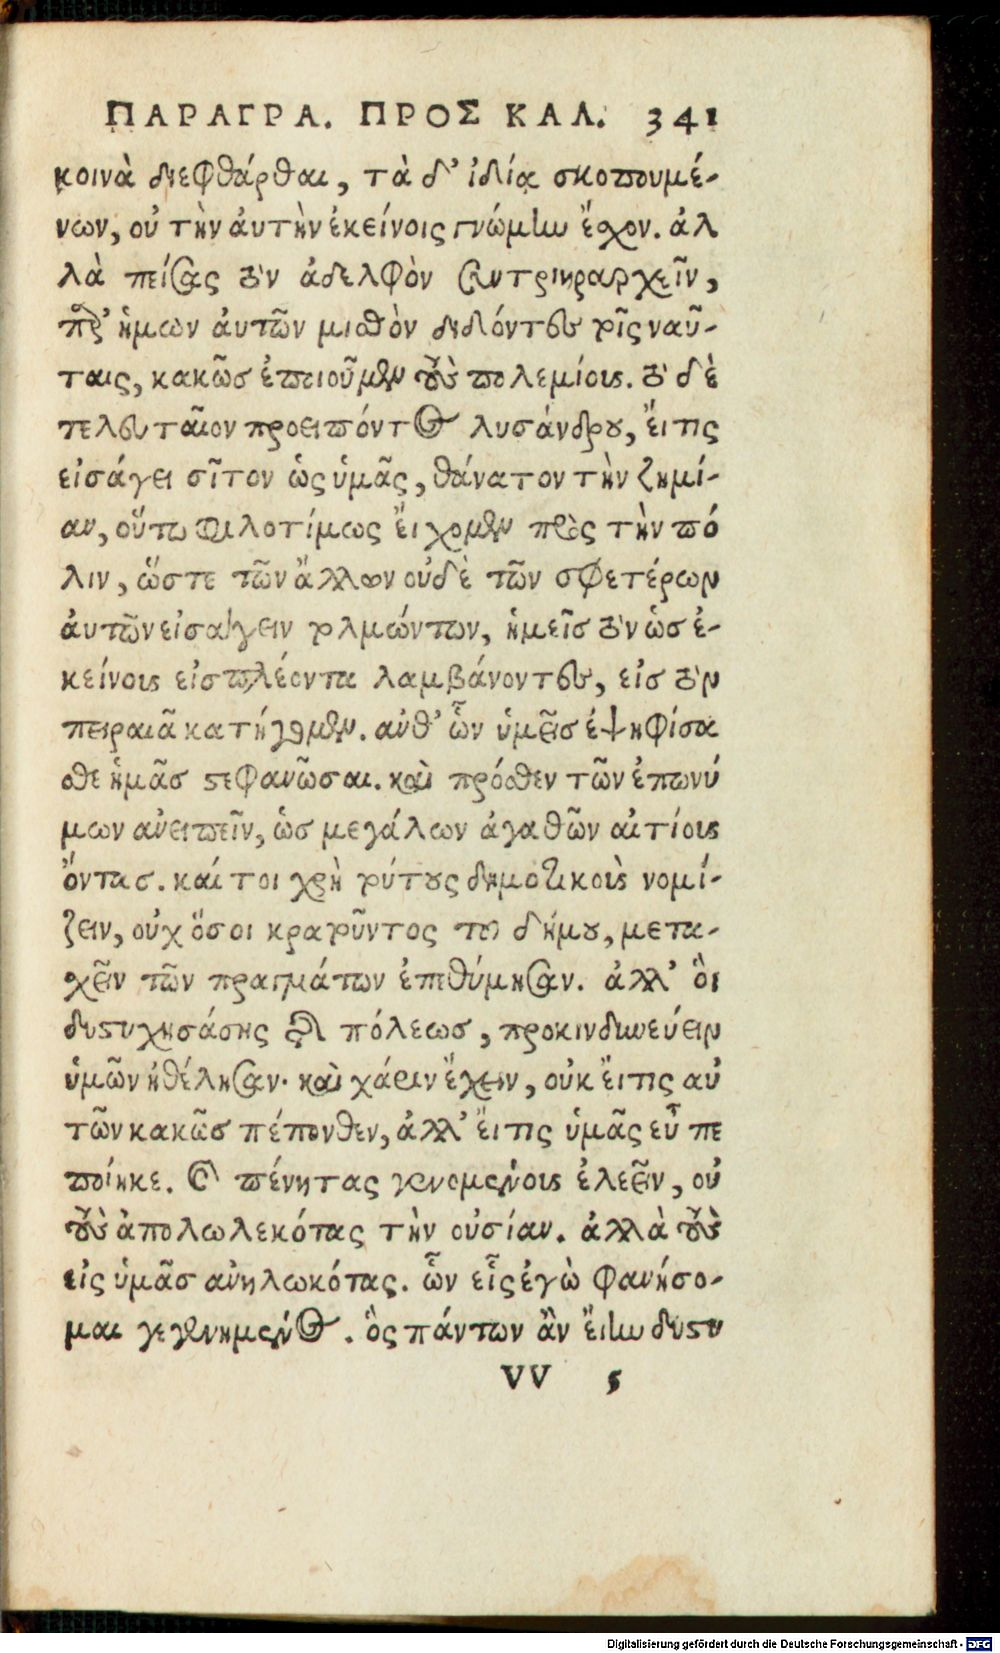 ΠΑΡΑΓΡΑ. ΠΡΟΣ ΚΑΛ. 341
κοινὰ διεφθάρθαι, τὰ δ' ἰδίᾳ σκοπουμέ-
νων, οὐ τὴν ἀυτὴν ἐκείνοις γνώμην ἔχον. ἀλ
λὰ πείσας τὸν ἀδελφὸν συντριηραρχεῖν,
παρ' ἡμων ἀυτῶν μισθὸν διδόντες τοῖς ναῦ-
ταις, κακῶς ἐποιοῦμεν τοὺς πολεμίους. τὸ δὲ
τελευταῖον προειπόντος λυσάνδρου, ἔι τις
εἰσάγει σῖτον ὡς ὑμᾶς, θάνατον τὴν ζημί-
αν, οὕτω φιλοτίμως ἔιχομεν πρὸς τὴν πό
λιν, ὥστε τῶν ἄλλων οὐδὲ τῶν σφετέρων
ἀυτῶν εἰσάγειν τολμώντων, ἡμεῖς τὸν ὡς ἐ-
κείνους εἰσπλέοντα λαμβάνοντες, εἰς τὸν
πειραιᾶ κατήγομεν. ανθ' ὧν ὑμεῖς ἐψηφίσα
σθε ἡμᾶς στεφανῶσαι. καὶ πρόσθεν τῶν ἐπωνύ
μων ανειπεῖν, ὡς μεγάλων ἀγαθῶν αἰτίους
ὄντας. καί τοι χρὴ τούτους δημοτικοὺς νομί-
ζειν, οὐχ ὅσοι κρατοῦντος τοῦ δήμου, μετα-
χεῖν τῶν πραγμάτων ἐπεθύμησαν. ἀλλ' ὃι
δυστυχησάσης τῆς πόλεως, προκινδυνεύειν
ὑμῶν ἠθέλησαν. καὶ χάριν ἔχειν, ουκ ἔι τις αὐ
τῶν κακῶς πέπονθεν, ἀλλ' ἔι τις ὑμᾶς εὖ πε
ποίηκε. καὶ πένητας γενομένους ἐλεεῖν, οὐ
τοὺς ἀπολωλεκότας τὴν οὐσίαν. ἀλλὰ τοὺς
εἰς ὑμᾶς ανηλωκότας. ὧν εἷς ἐγὼ φανήσο-
μαι γεγενημένος. ὃς πάντων ἂν ἔιην δυστυ
VV 5
Digitalisierung gefördert durch die Deutsche Forschungsgemeinschaft - DFG